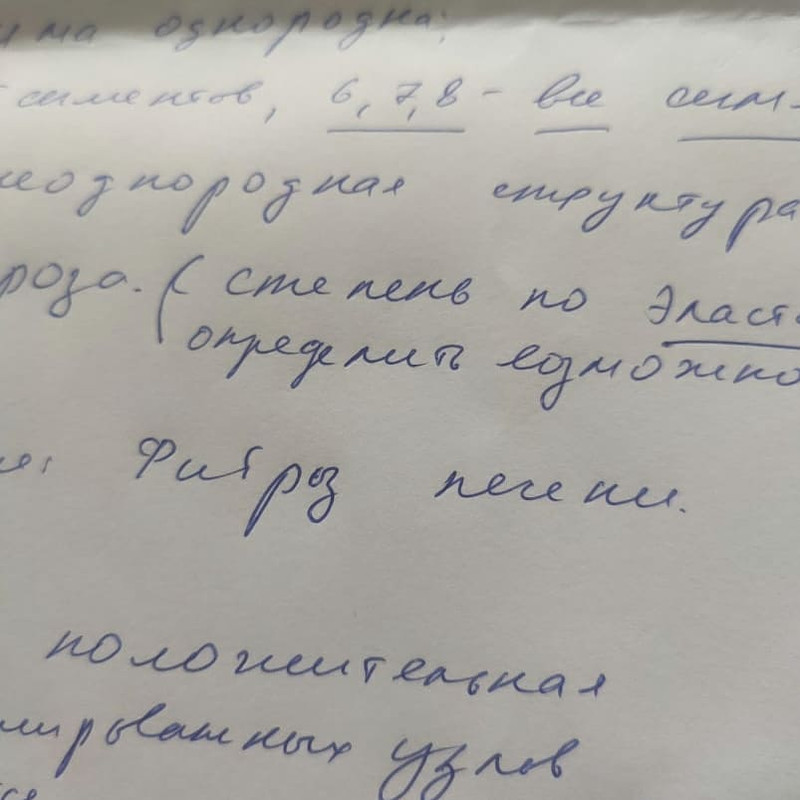 има однородна;
сегментов, 6,7,8 - все сегм
неоднородная структура
роза. (степень по эласт
определить возможно
Фиброз печени.
положительная
лированных узлов